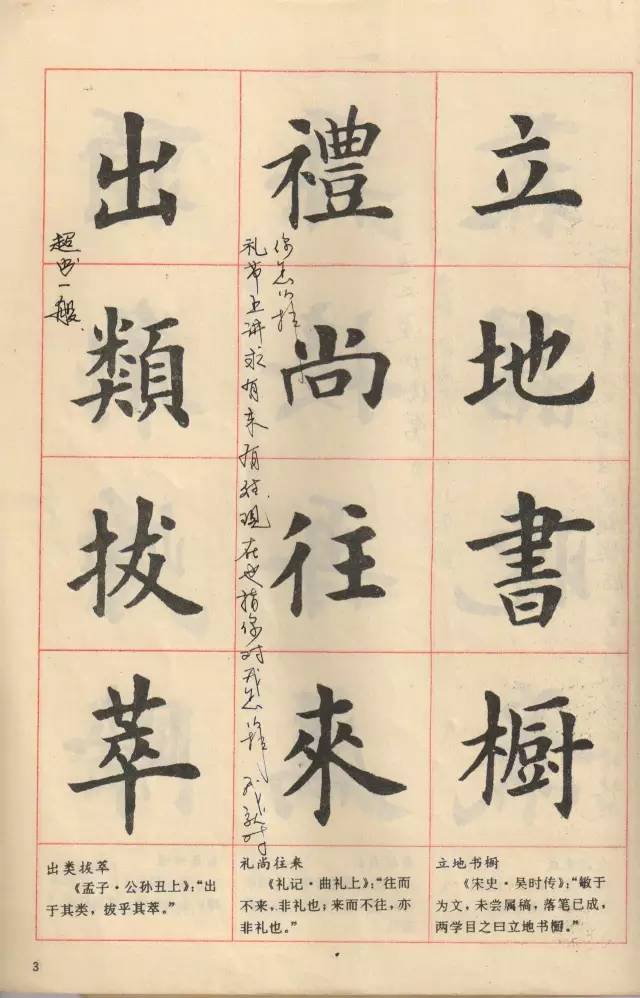 立地書櫥
禮尚往來
出類拔萃
礼节上讲求有来有往现在也指你对我怎样我就对
你怎么样
超出一般
立地书橱
《宋史·吴时传》：“敏于
为文，未尝属稿，落笔已成，
两学目之曰立地书橱。”
礼尚往来
《礼记·曲礼上》：“往而
不来，非礼也；来而不往，亦
非礼也。”
出类拔萃
《孟子·公孙丑上》：“出
于其类，拔乎其萃。”
3